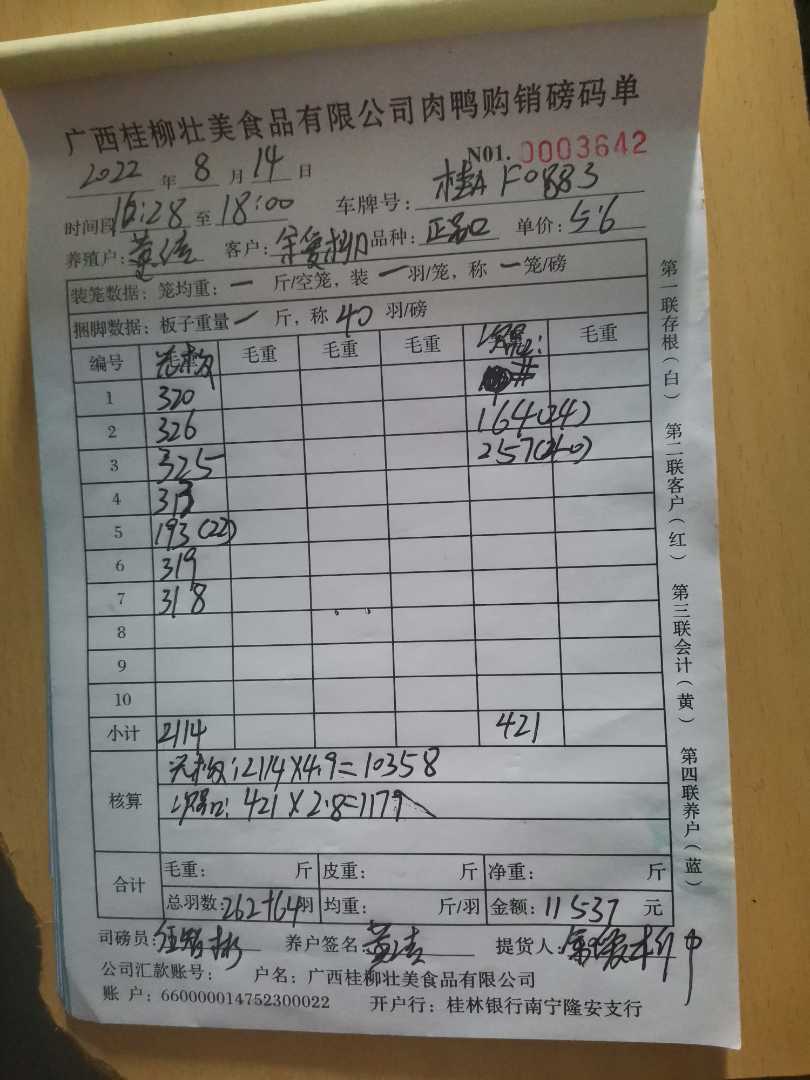 广西桂柳壮美食品有限公司肉鸭购销磅码单
2022 年 8 月 14 日 N01. 0003642
时间段 16:28 至 18:00 车牌号: 桂A F0883
养殖户: 黄 客户: 品种: 正品 单价: 5.6
装笼数据: 笼均重: 一 斤/空笼, 装 一 羽/笼, 称 一 笼/磅
捆脚数据: 板子重量 一 斤, 称 40 羽/磅
编号 毛重 毛重 毛重 毛重
1 320
2 326 164(24)
3 325 257(40)
4 313
5 193(22)
6 319
7 318
8
9
10
小计 2114 421
核算 2114×4.9=10358
421×2.8=1179
合计 毛重: 斤 皮重: 斤 净重: 斤
总羽数: 262+64 羽 均重: 斤/羽 金额: 11537 元
司磅员: 养户签名: 黄 提货人:
公司汇款账号: 户名: 广西桂柳壮美食品有限公司
账 户: 660000014752300022 开户行: 桂林银行南宁隆安支行
第一联存根(白) 第二联客户(红) 第三联会计(黄) 第四联养户(蓝)